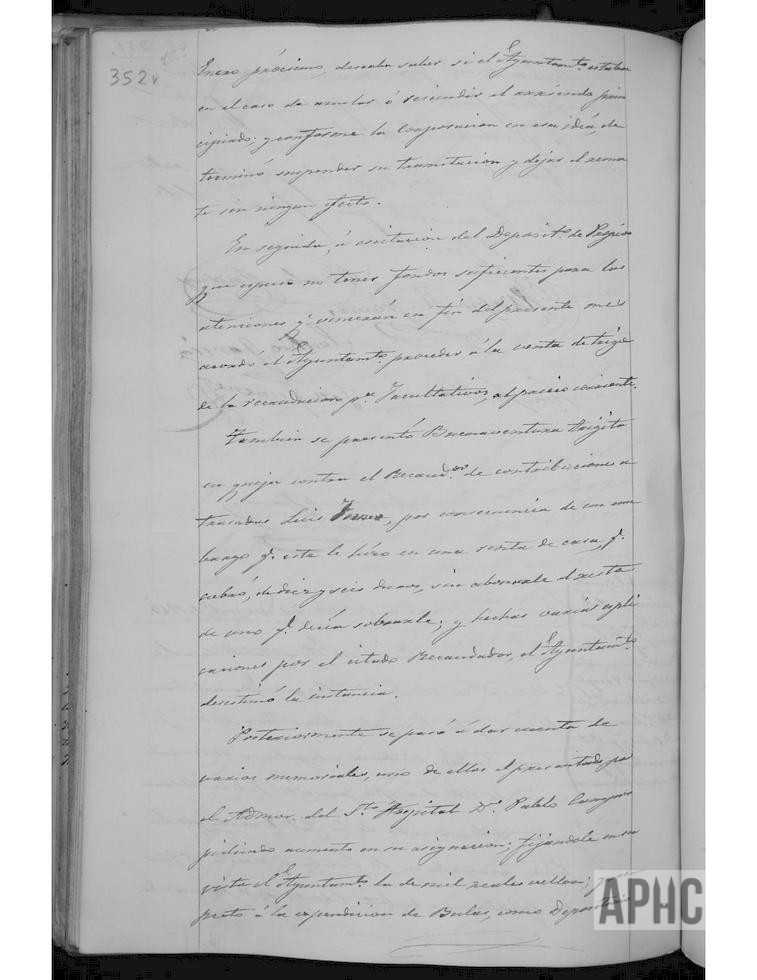 352v
Enero próximo, deseaba saber si el Ayuntamto. estaba
en el caso de anular ó rescindir el arriendo prin
cipiado; y conforme la Corporacion en esa idéa, de
terminó suspender su tramitacion y dejar el rema
te sin ningun efecto.
En seguida, á escitacion del Deposito. de Propios
que espuso no tener fondos suficientes para las
atenciones q. vencerán en fin del presente mes
acordó el Ayuntamto. proceder á la venta de trigo
de la recaudacion pa. Facultativos, al precio corriente.
Tambien se presentó Buenaventura
en queja contra el Recaudor. de contribuciones a
trasadas Luis Ferrer, por consecuencia de un em
bargo q. este le hizo en una renta de casa, q.
cobró, de diez y seis duros, sin abonarle el resto
de uno q. decía sobrarle; y hechas varias espli
caciones por el citado Recaudador, el Ayuntamto.
desestimó la instancia.
Posteriormente se pasó á dar cuenta de
varios memoriales, uno de ellos el presentado por
el Admor. del Sto. Hospital Dn. Pablo
pidiendo aumento en su asignacion; fijandole en su
vista el Ayuntamto. la de mil reales vellon;
pecto á la espendicion de Bulas, como Depositario
APHC